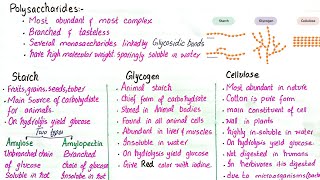 Polysaccharides:-
• Most abundant & most complex
• Branched & tasteless
• Several monosaccharides linked by Glycosidic bonds
• have high molecular weight sparingly soluble in water
Starch Glycogen Cellulose
Starch
• Fruits, grains, seeds, tuber
• Main Source of carbohydrate
for animals.
• On hydrolysis yield glucose
Two types
Amylose
Unbranched
chain of
glucose
Soluble in hot
Amylopectin
Branched
chain
of glucose
Insoluble in hot
Glycogen
• Animal starch
• Chief form of carbohydrate
stored in Animal bodies
• Found in all animal cells
• Abundant in liver & muscles
• Insoluble in water
• On hydrolysis yield glucose
• Give Red color with iodine.
Cellulose
• Most abundant in nature
• Cotton is pure form
• main constituent of cell
wall in plants
• highly in-soluble in water
• On hydrolysis yield glucose
• Not digested in humans
• In herbivores is digested
due to microorganisms